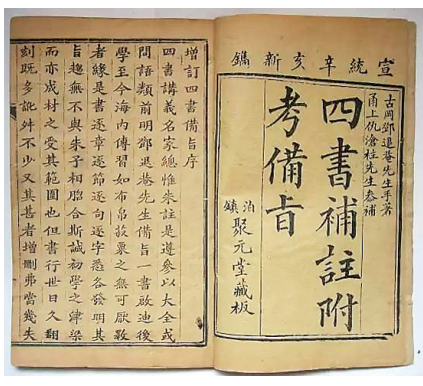 宣統辛亥新鐫
古岡鄧退菴先生手著
甬上仇滄柱先生參補
四書補註附
考備旨
泊鎮聚元堂藏板
增訂四書備旨序
四書講義名家總惟朱註是遵參以大全或
問語類前明鄧退菴先生備旨一書啟迪後
學至今海內傳習如布帛菽粟之無可厭斁
者緣是書逐章逐節逐句逐字悉各發明其
旨趣無不與朱子相脗合斯誠初學之津梁
而亦成材之受其範圍也但書行世日久翻
刻既多訛舛不少又其甚者增刪弗當幾失